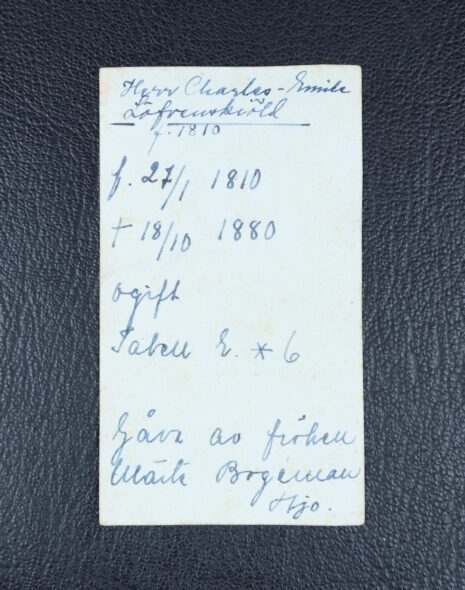 Herr Charles-Emile
Löfvenskiöld
f. 1810
f. 27/1 1810
† 18/10 1880
ogift
Tabell E. * 6
Gåva av fröken
Märta Bogeman
Hjo.